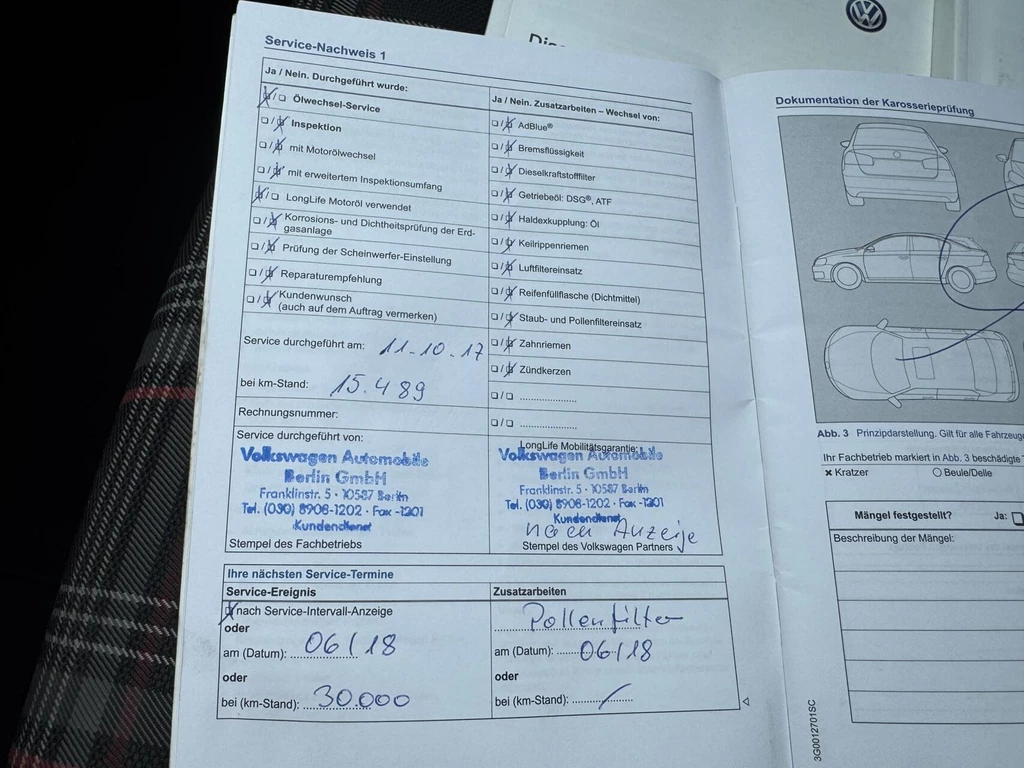 Service-Nachweis 1
Ja / Nein. Durchgeführt wurde:
Ölwechsel-Service
Inspektion
mit Motorölwechsel
mit erweitertem Inspektionsumfang
LongLife Motoröl verwendet
Korrosions- und Dichtheitsprüfung der Erd-
gasanlage
Prüfung der Scheinwerfer-Einstellung
Reparaturempfehlung
Kundenwunsch
(auch auf dem Auftrag vermerken)
Service durchgeführt am: 11.10.17
bei km-Stand: 15.489
Rechnungsnummer:
Service durchgeführt von:
Volkswagen Automobile
Berlin GmbH
Franklinstr. 5 · 10587 Berlin
Tel. (030) 8908-1202 · Fax -1201
Kundendienst
Stempel des Fachbetriebs
Ja / Nein. Zusatzarbeiten – Wechsel von:
AdBlue®
Bremsflüssigkeit
Dieselkraftstofffilter
Getriebeöl: DSG®, ATF
Haldexkupplung: Öl
Keilrippenriemen
Luftfiltereinsatz
Reifenfüllflasche (Dichtmittel)
Staub- und Pollenfiltereinsatz
Zahnriemen
Zündkerzen
LongLife Mobilitätsgarantie:
Volkswagen Automobile
Berlin GmbH
Franklinstr. 5 · 10587 Berlin
Tel. (030) 8908-1202 · Fax -1201
Kundendienst
nach Anzeige
Stempel des Volkswagen Partners
Ihre nächsten Service-Termine
Service-Ereignis
nach Service-Intervall-Anzeige
oder
am (Datum): 06/18
oder
bei (km-Stand): 30.000
Zusatzarbeiten
Pollenfilter
am (Datum): 06/18
oder
bei (km-Stand): /
Dokumentation der Karosserieprüfung
Abb. 3 Prinzipdarstellung. Gilt für alle Fahrzeuge
Ihr Fachbetrieb markiert in Abb. 3 beschädigte
× Kratzer
Beule/Delle
Mängel festgestellt? Ja:
Beschreibung der Mängel:
3G0012701SC